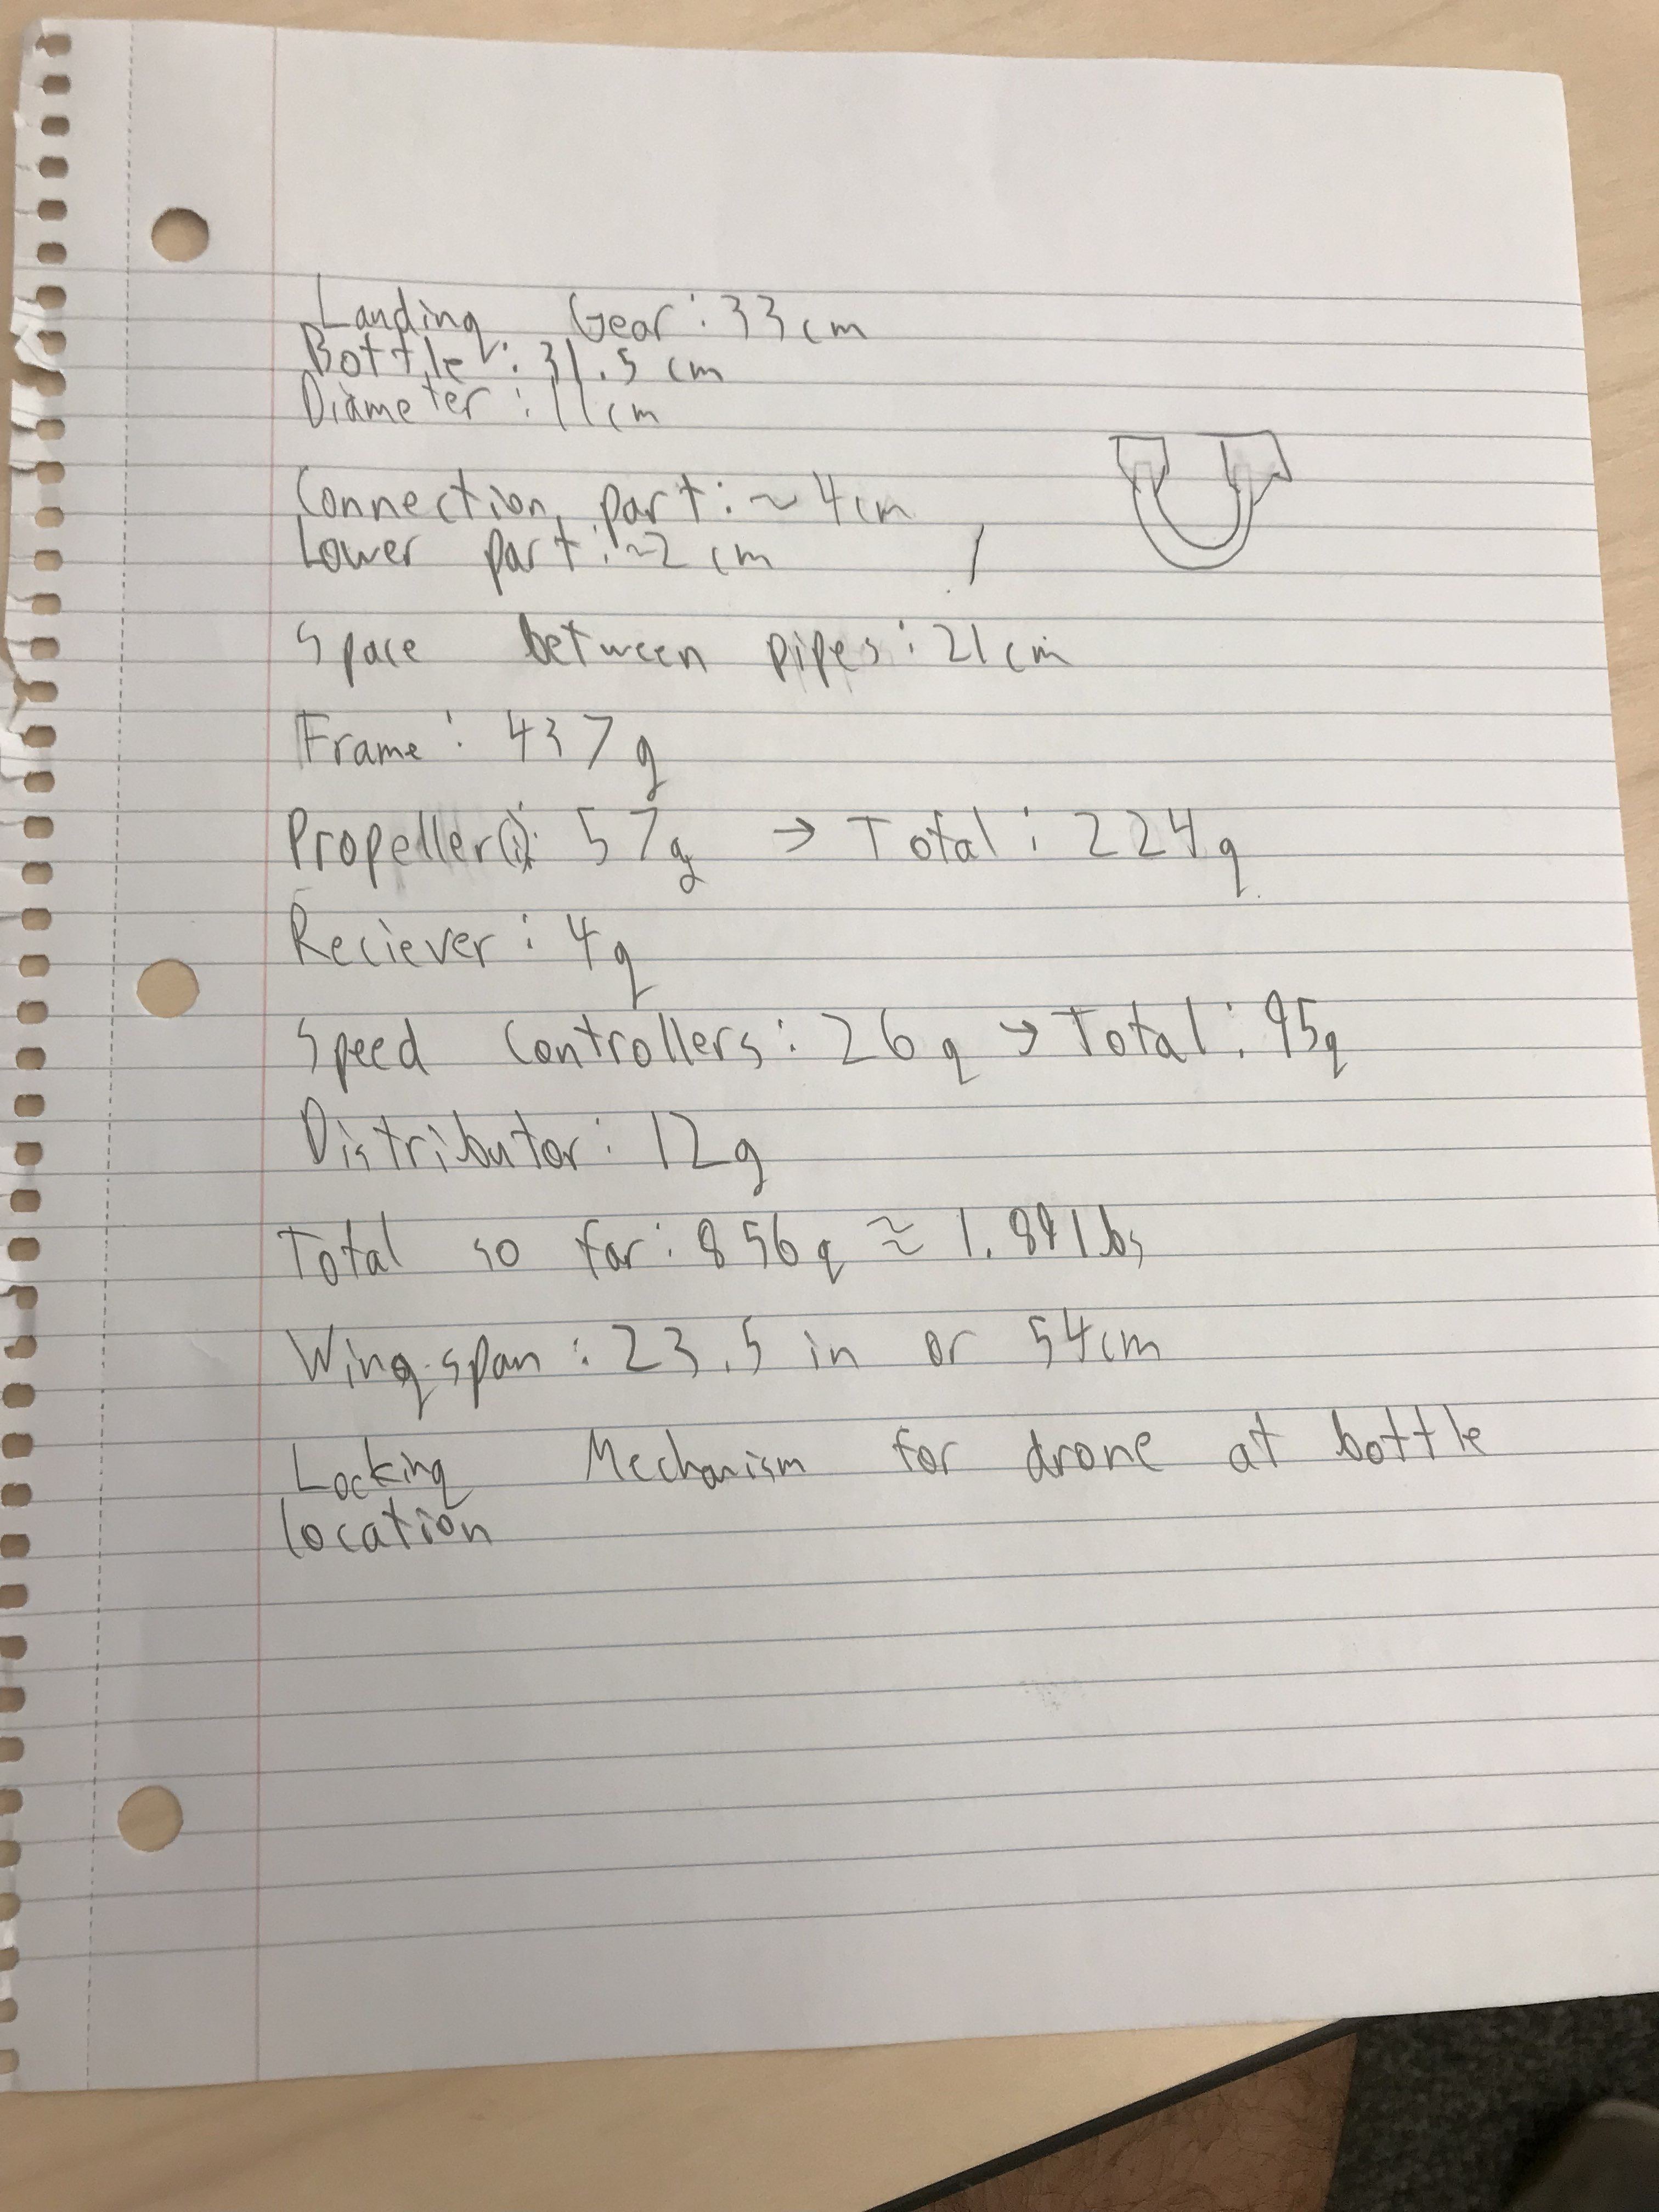 Landing Gear: 33cm
Bottle: 31.5 cm
Diameter: 11cm
Connection part: ~ 4cm
Lower part: ~2 cm
Space between pipes: 21cm
Frame: 437g
Propeller(s): 57g → Total: 224g
Reciever: 4g
Speed Controllers: 26g → Total: 95g
Distributor: 12g
Total so far: 856g ≈ 1.89lbs
Wingspan: 23.5 in or 54cm
Locking Mechanism for drone at bottle
location